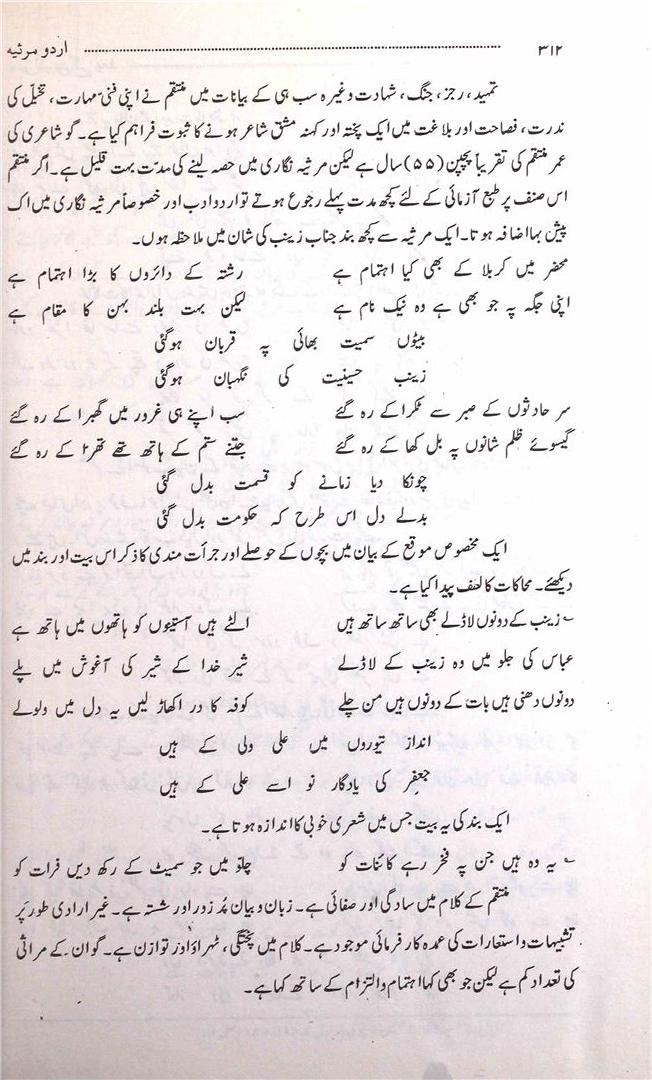 ۳۱۲ اردو مرثیہ
تمہید، رجز، جنگ، شہادت وغیرہ سب ہی کے بیانات میں منتقم نے اپنی فنی مہارت، تخیّل کی
ندرت، فصاحت اور بلاغت میں ایک پختہ اور کہنہ مشق شاعر ہونے کا ثبوت فراہم کیا ہے۔ گو شاعری کی
عمر منتقم کی تقریباً پچپن (۵۵) سال ہے لیکن مرثیہ نگاری میں حصہ لینے کی مدّت بہت قلیل ہے۔ اگر منتقم
اس صنف پر طبع آزمائی کے لئے کچھ مدت پہلے رجوع ہوتے تو اردو ادب اور خصوصاً مرثیہ نگاری میں اک
پیش بہا اضافہ ہوتا۔ ایک مرثیہ سے کچھ بند جناب زینب کی شان میں ملاحظہ ہوں۔
محضر میں کربلا کے بھی کیا اہتمام ہے رشتہ کے دائروں کا بڑا اہتمام ہے
اپنی جگہ پہ جو بھی ہے وہ نیک نام ہے لیکن بہت بلند بہن کا مقام ہے
بیٹوں سمیت بھائی پہ قربان ہوگئی
زینب حسینیت کی نگہبان ہوگئی
سر حادثوں کے صبر سے ٹکرا کے رہ گئے سب اپنے ہی غرور میں گھبرا کے رہ گئے
گیسوئے ظلم شانوں پہ بل کھا کے رہ گئے جتنے ستم کے ہاتھ تھے تھرّا کے رہ گئے
چونکا دیا زمانے کو قسمت بدل گئی
بدلے دل اس طرح کہ حکومت بدل گئی
ایک مخصوص موقع کے بیان میں بچوں کے حوصلے اور جرأت مندی کا ذکر اس بیت اور بند میں
دیکھئے۔ محاکات کا لطف پیدا کیا ہے۔
؎ زینب کے دونوں لاڈلے بھی ساتھ ساتھ ہیں الٹے ہیں آستیوں کو ہاتھوں میں ہاتھ ہے
عباس کی جلو میں وہ زینب کے لاڈلے شیر خدا کے شیر کی آغوش میں پلے
دونوں دھنی ہیں بات کے دونوں ہیں من چلے کوفہ کا در اکھاڑ لیں یہ دل میں ولولے
انداز تیوروں میں علی ولی کے ہیں
جعفر کی یادگار نو اسے علی کے ہیں
ایک بند کی یہ بیت جس میں شعری خوبی کا اندازہ ہوتا ہے۔
؎ یہ وہ ہیں جن پہ فخر رہے کائنات کو چلّو میں جو سمیٹ کے رکھ دیں فرات کو
منتقم کے کلام میں سادگی اور صفائی ہے۔ زبان و بیان پُر زور اور شستہ ہے۔ غیر ارادی طور پر
تشبیہات و استعارات کی عمدہ کار فرمائی موجود ہے۔ کلام میں پختگی، ٹھہراؤ اور توازن ہے۔ گو ان کے مراثی
کی تعداد کم ہے لیکن جو بھی کہا اہتمام و التزام کے ساتھ کہا ہے۔